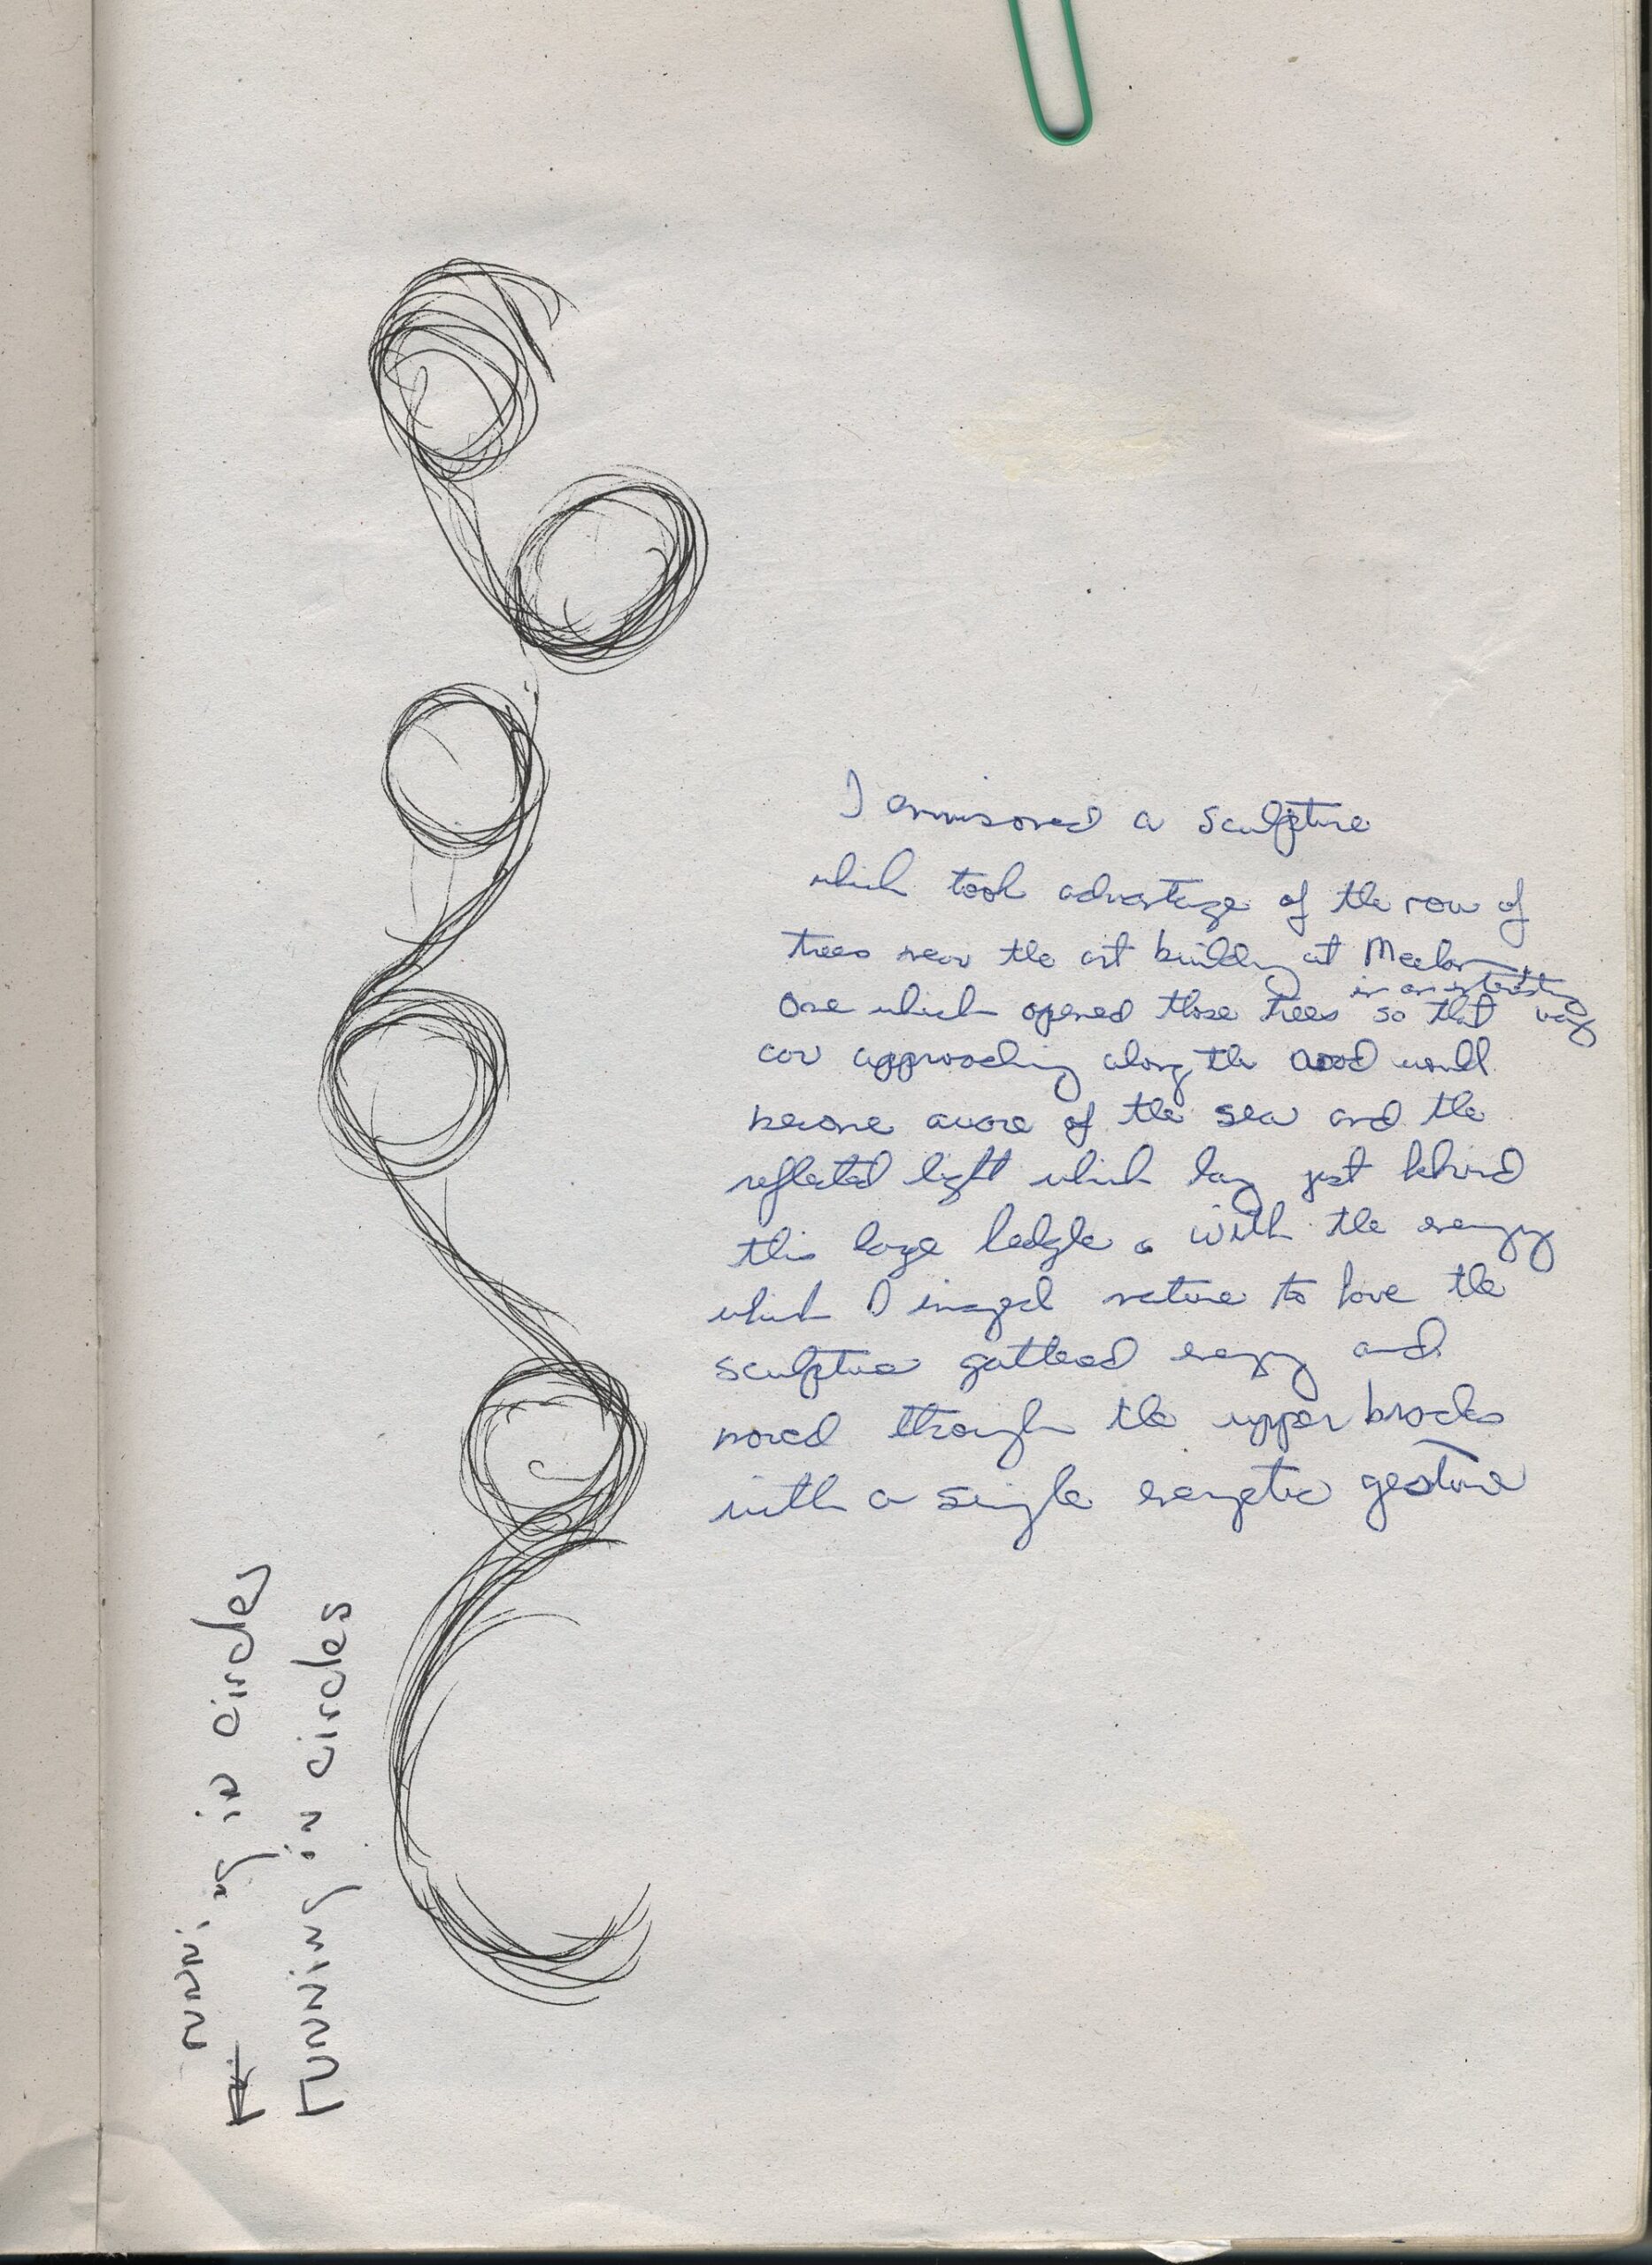 I envisioned a sculpture
which took advantage of the row of
trees near the art building at
in an interesting
one which opened those trees so that way
car approaching along the road would
become aware of the sea and the
reflected light which lay just behind
this large hedge. With the energy
which I imaged nature to have the
sculpture gathered energy and
moved through the upper branches
with a single energetic gesture
running in circles
running in circles